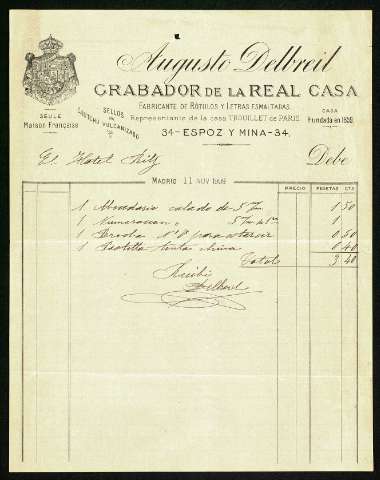 Augusto Delbreil
GRABADOR DE LA REAL CASA
FABRICANTE DE RÓTULOS Y LETRAS ESMALTADAS
Representante de la casa TROUILLET de PARIS
34-ESPOZ Y MINA-34
SEULE
Maison Française
SELLOS
DE
CAUTCHU VULCANIZADO
CASA
Fundada en 1859
El Hotel Ritz
Debe
MADRID 11 NOV 1909
PRECIO PESETAS CTS
1 Abecedario calado de 5 1 50
1 Numeracion 5 1
1 Brocha Nº 8 para estarcir 0,50
1 Pastilla tinta china 0 40
Total 3 40
Recibí
Delbreil